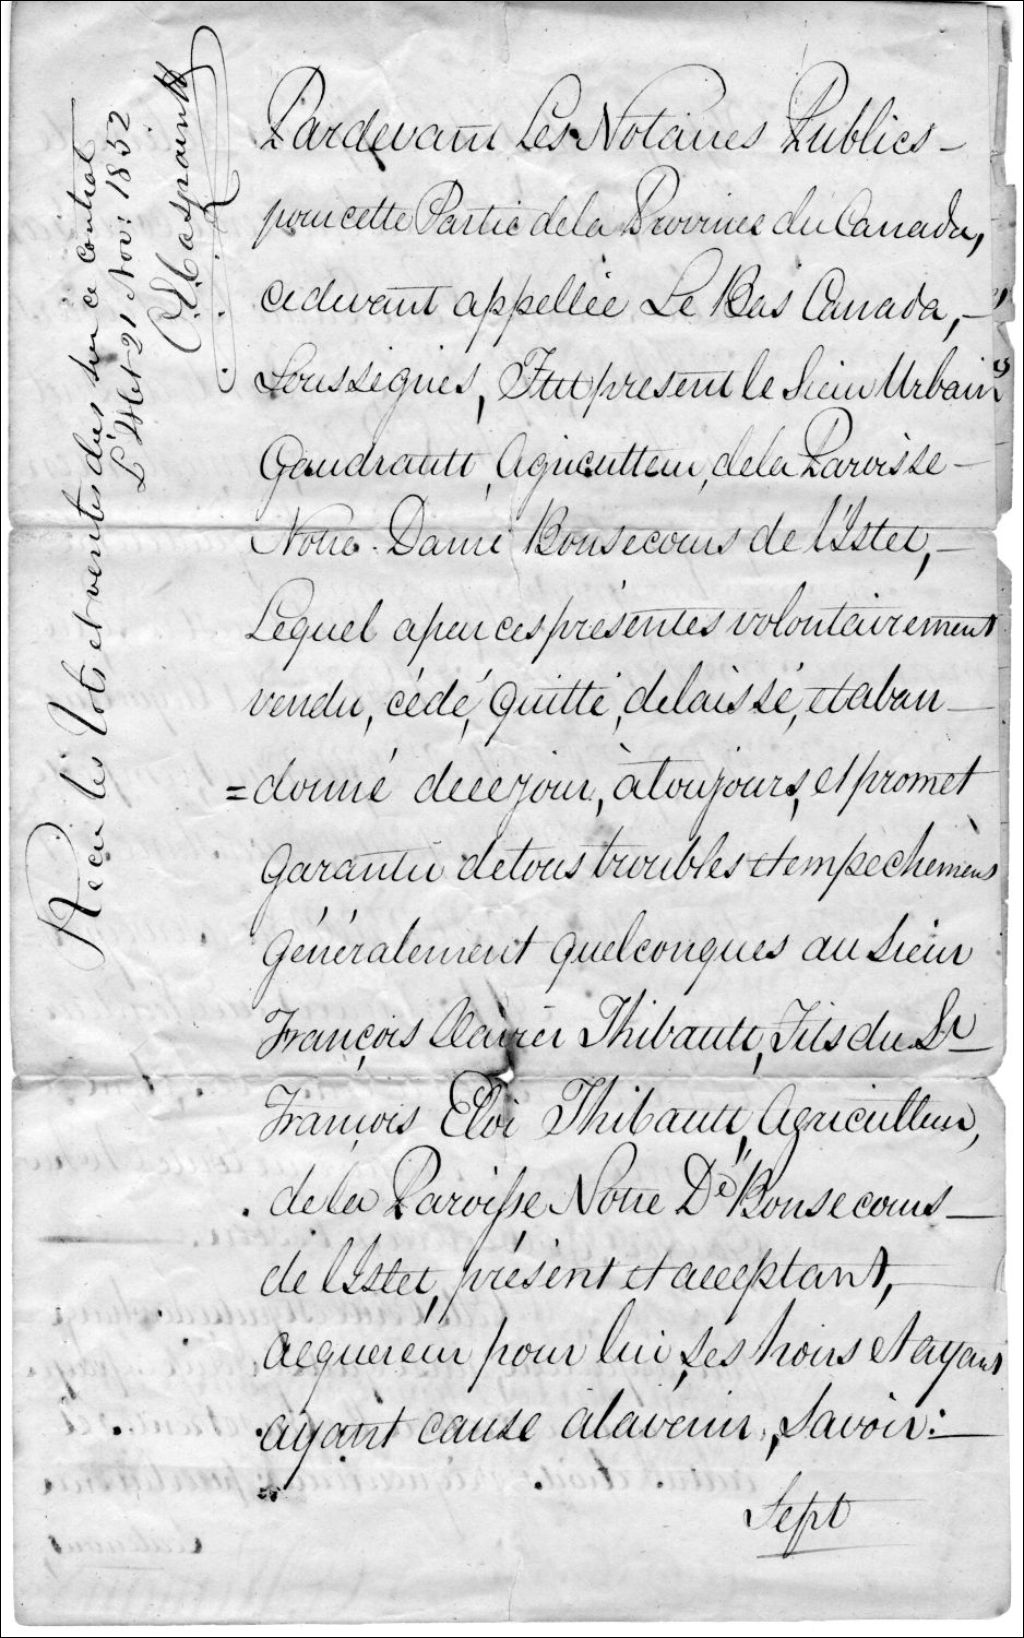 Pardevant Les Notaires Publics -
pour cette Partie de la Province du Canada,
cidevant appellée Le Bas Canada, -
Soussignés, Fut present le Sieur Urbain
Gaudrault, Agriculteur, de la Paroisse -
Notre-Dame Bonsecours de l'Islet, -
Lequel a par ces présentes volontairement
vendu, cédé, quitté, delaissé, et aban -
= donné de ce jour, à toujours, et promet
garantir de tous troubles et empechemens
généralement quelconques au Sieur
François Xavier Thibault, Fils du Sr
François Eloi Thibault, Agriculteur,
de la Paroisse Notre De Bonsecours -
de l'Islet, présent et acceptant, -
acquereur pour lui, ses hoirs et ayans
ayant cause à l'avenir, Savoir: -
Sept
Recu les lots et ventes dus sur ce contrat
L'Islet 21 Nov: 1852